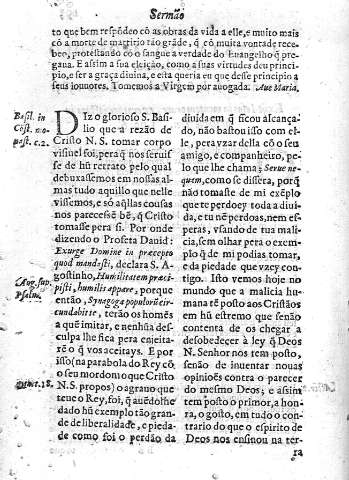 Sermão
to que bem respõdeo cõ as obras da vida a elle, e muito mais
cõ a morte de magtirio tão grãde, q̃ cõ muita vontade rece-
beo, protestando cõ o sangue a verdade do Euangelho q̃ pre-
gaua. E assim a sua eleição, como a suas virtudes deu princi-
pio, e ser a graça diuina, e esta queria eu que desse principio a
seus louuores. Tomemos a Virgem por auogada. Aue Maria.
Basil. in
Cõst. mo-
nast. c.2.
DIz o glorioso S. Ba-
silio que a rezão de
Cristo N. S. tomar corpo
visiuel foi, pera q̃ nos seruis-
se de hũ retrato pelo qual
debuxassemos em nossas al-
mas tudo aquillo que nelle
vissemos, e só aq̃llas cousas
nos parecessẽ bẽ, q̃ Cristo
tomasse pera si. Por onde
dizendo o Profeta Dauid:
Exurge Domine in præcepto
quod mandasti, declara S. A-
gostinho, Humilitatem præci-
pisti, humilis appare, porque
então, Synagoga populorũ cir-
cundabit te, terão os homẽs
a quẽ imitar, e nenhũa des-
culpa lhe fica pera enjeita-
rẽ o q̃ vos aceitays. E por
isso (na parabola do Rey cõ
o seu mordomo que Cristo
N. S. propos) o agrauo que
teue o Rey, foi, q̃ auẽdolhe
dado hũ exemplo tão gran-
de de liberalidade, e pieda-
de como foi o perdão da
Aug. sup.
Psalm.
Matt. 18.
diuida em q̃ ficou alcança-
do, não bastou isso com el-
le, pera vzar della cõ o seu
amigo, e companheiro, pe-
lo que lhe chama; Serue ne-
quem, como se dissera, porq̃
nã tomaste de mi exẽplo
que te perdoey toda a diui-
da, e tu nẽ perdoas, nem es-
peras, vsando de tua mali-
cia, sem olhar pera o exem-
plo q̃ de mi podias tomar,
e da piedade que vzey con-
tigo. Isto vemos hoje no
mundo que a malicia hu-
mana tẽ posto aos Cristãos
em hũ estremo que senão
contenta de os chegar a
desobedecer à ley q̃ Deos
N. Senhor nos tem posto,
senão de inuentar nouas
opiniões contra o parecer
do mesmo Deos; e assim
tem posto o primor, a hon-
ra, o gosto, em tudo o con-
trario do que o espirito de
Deos nos ensinou na ter-
ra